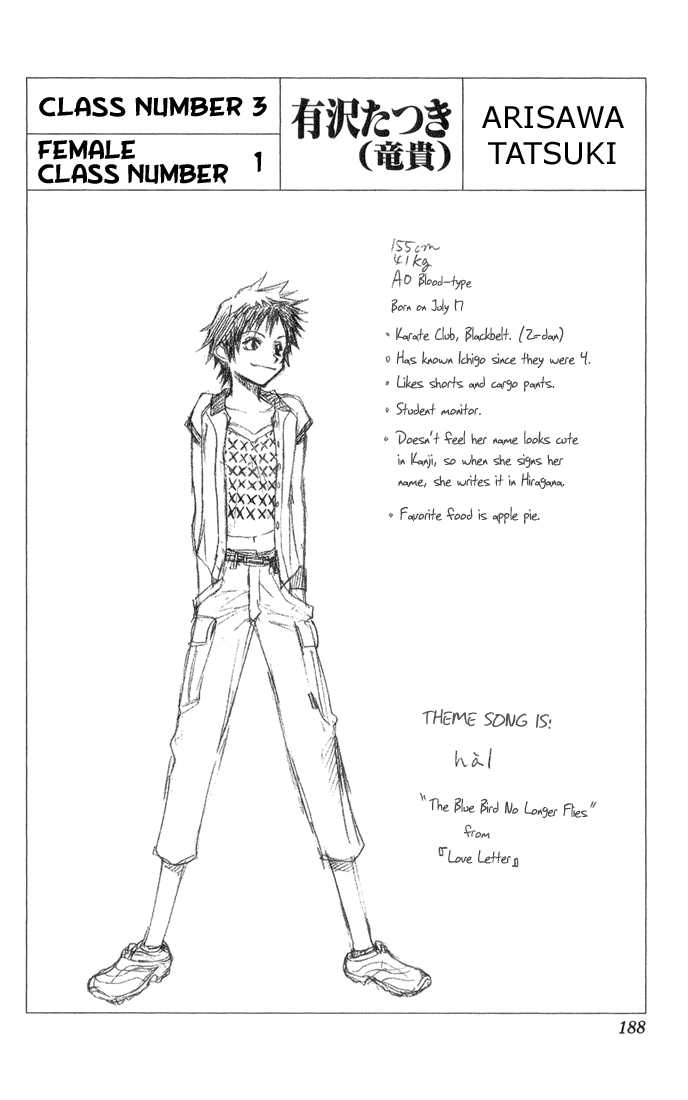 CLASS NUMBER 3
FEMALE
CLASS NUMBER 1
有沢たつき
(竜貴)
ARISAWA
TATSUKI
155cm
41kg
AO Blood-type
Born on July 17
• Karate Club, Blackbelt. (2=dan)
• Has known Ichigo since they were 4.
• Likes shorts and cargo pants.
• Student monitor.
• Doesn't feel her name looks cute
in Kanji, so when she signs her
name, she writes it in Hiragana.
• Favorite food is apple pie.
THEME SONG IS:
hàl
"The Blue Bird No Longer Flies"
from
『Love Letter』
188